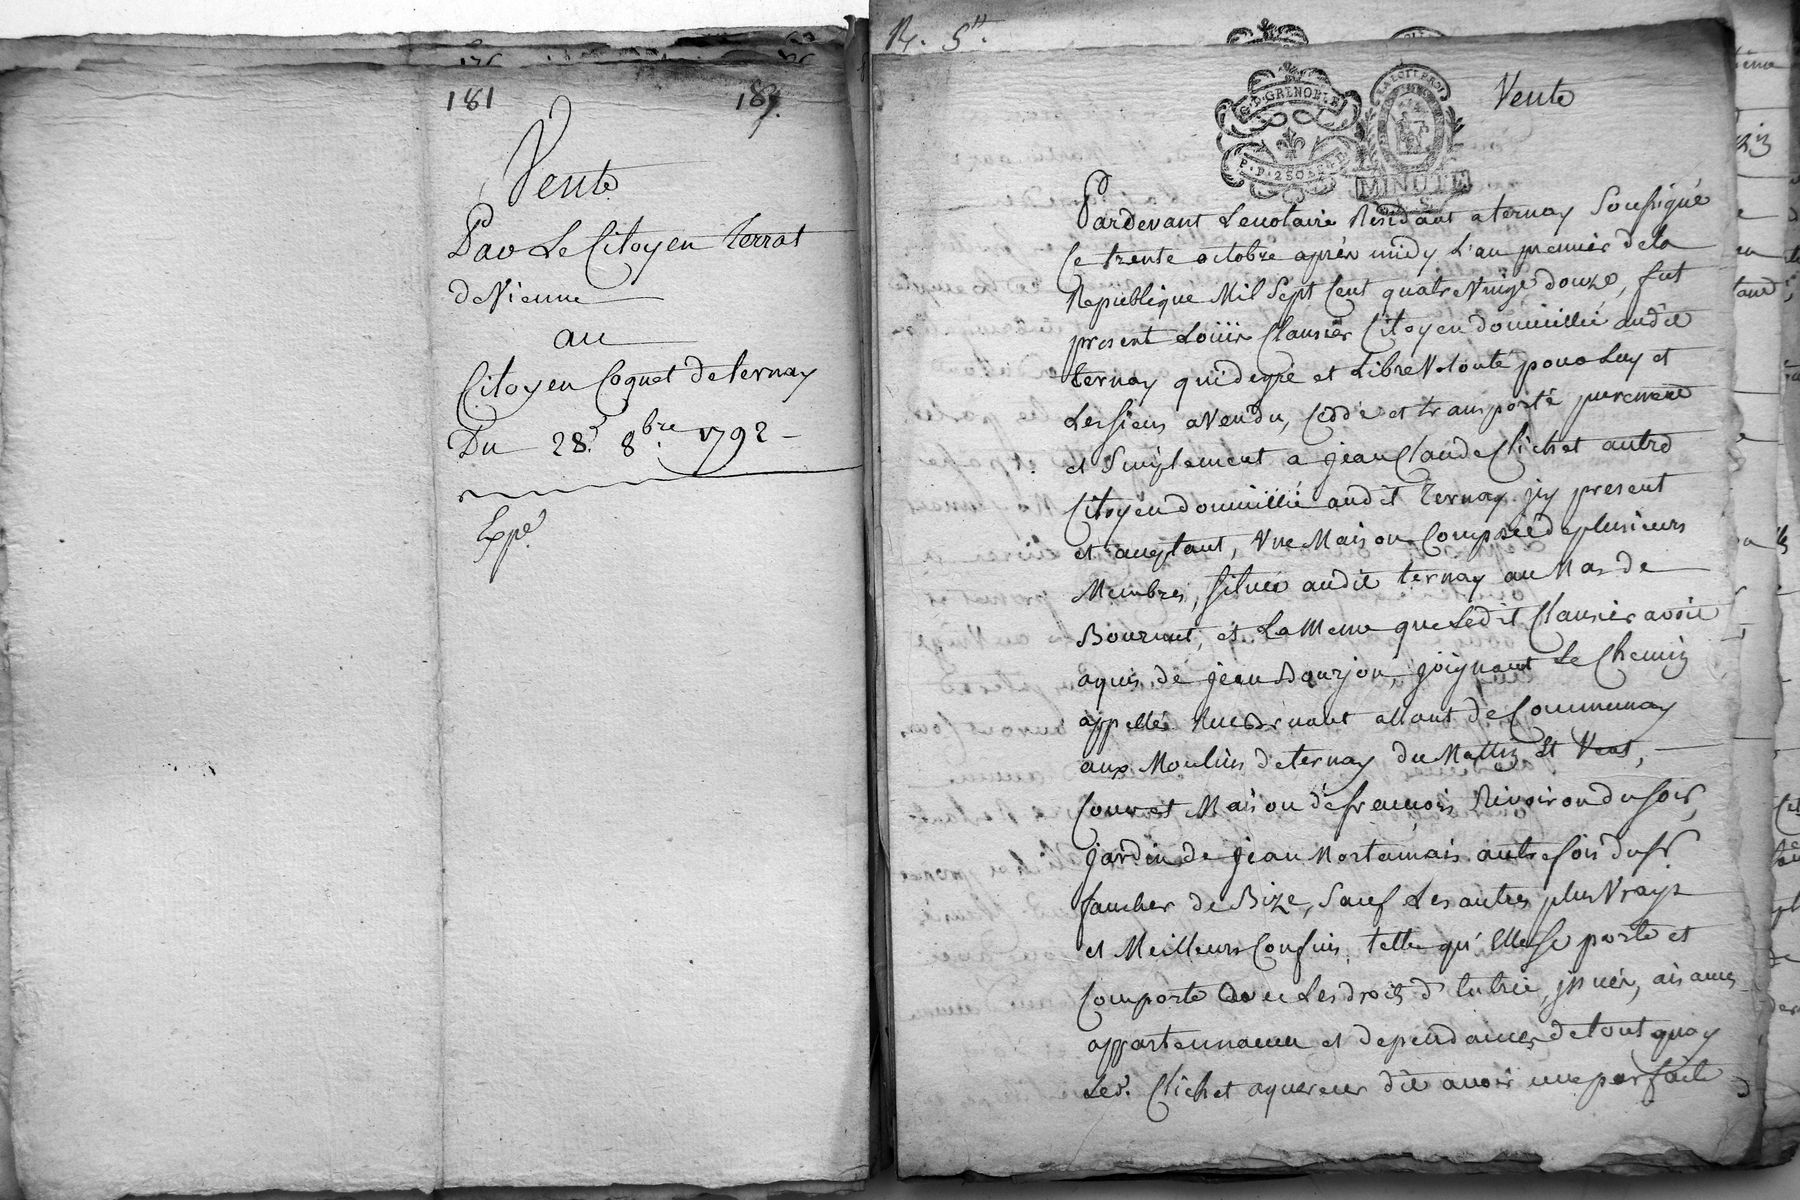 181 187.
Vente
Par Le Citoyen terrat
deVienne
au
Citoyen Coquet de ternay
Du 28e. 8bre 1792
Expé
R. 5tt.
G.D.GRENOBLE
P.P.2SOLS
LA LOI LE ROI
MINUTE
Vente
Pardevant Lenotaire Residant a ternay Soussigné
Ce trente octobre aprés midy L'an premier dela
Republique Mil Sept Cent quatre Vingt douze, fut
present Loüis Clausier Citoyen domicillié audit
ternay qui degré et Libre Volonté pour Luy et
Les siens a Vendu, Cédé et transporté purement
et Simplement a jean Claude Clichet autre
Citoyen domicillié audit ternay jcy present
et aceptant, Une Maison Composée de plusieurs
Membres, située audit ternay au Mas de
Bournut, et La Meme que Ledit Clausier avoit
aquis de jean Bourjon, joignant Le Chemin
appellé Rue Brunant allant de Communay
aux Moulins de ternay du Matin et Vent,
Cour et Maison de francois Rivoiron du soir,
jardin de jean Mortamais autrefois du sr.
faucher de Bize, Sauf Les autres plus Vrays
et Meilleurs Confins, telle qu'Elle se porte et
Comporte avec Les droits d'Entrée, jssuës, aisances
appartenances et dependances, de tout quoy
Led. Clichet aquereur dit avoir une parfaite